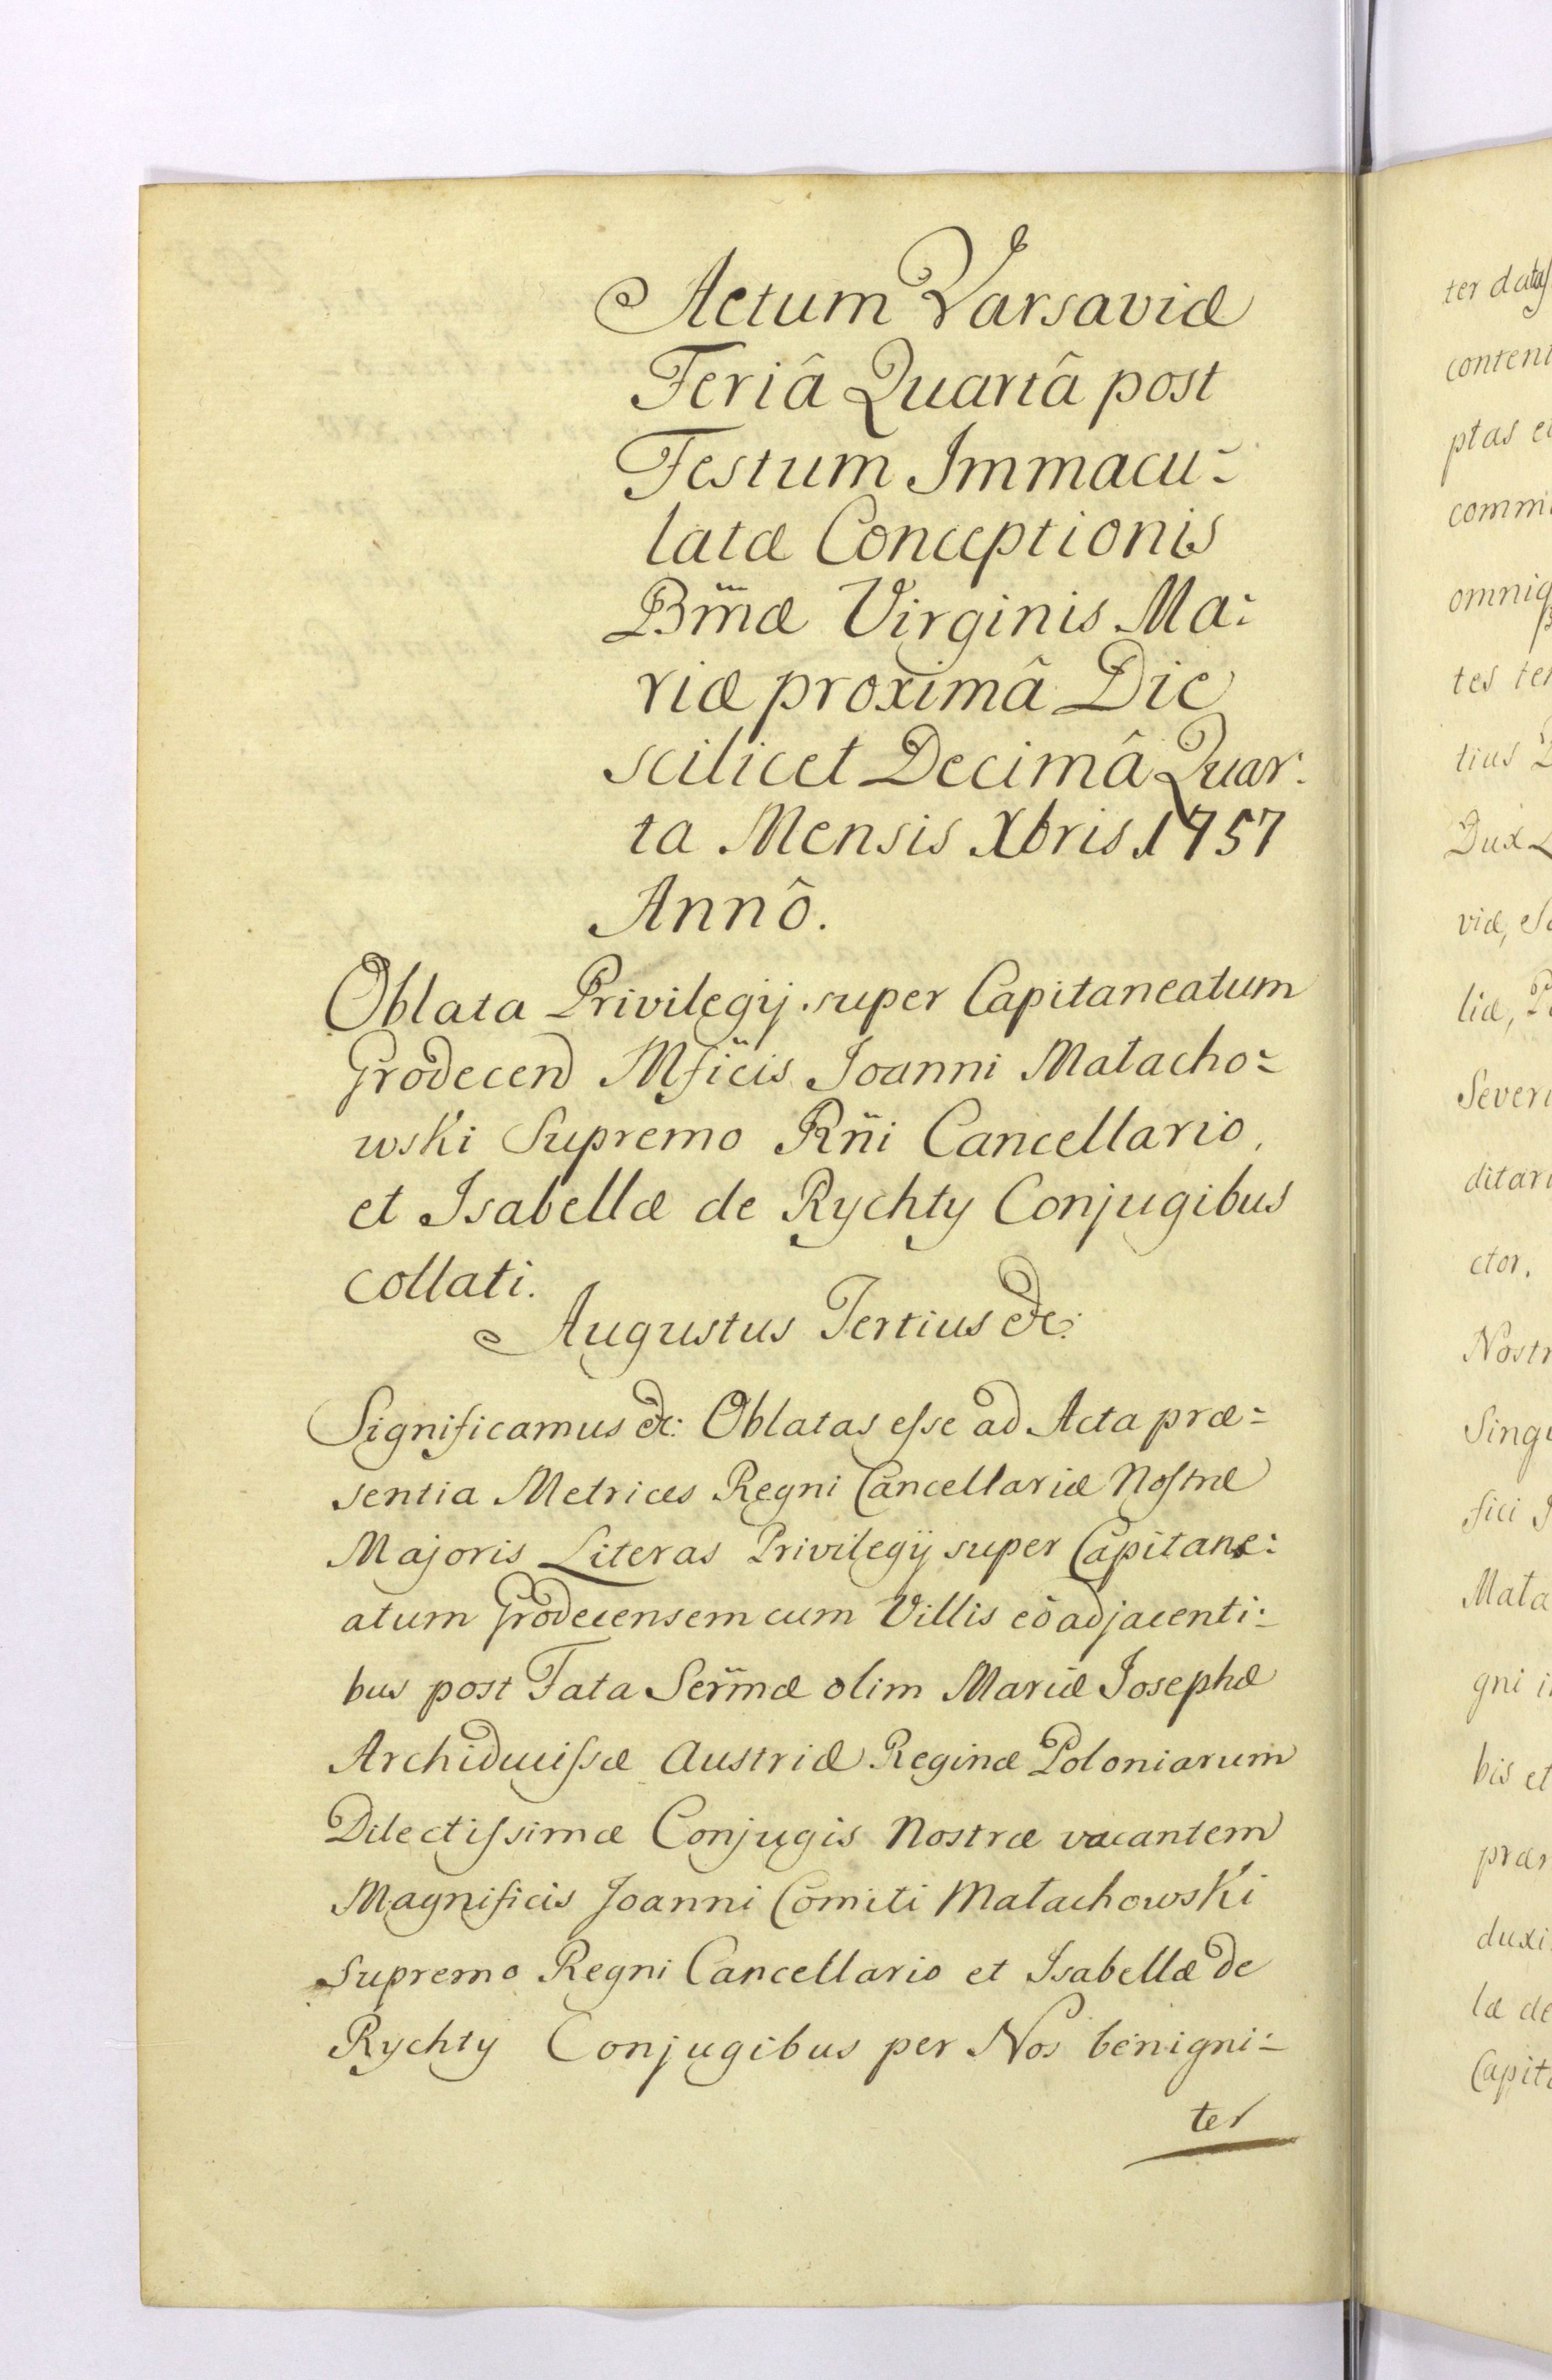 Actum Varsaviæ
Feriâ Quartâ post
Festum Immacu-
latæ Conceptionis
Bm̃æ Virginis Ma-
riæ proximâ Die
scilicet Decimâ Quar-
ta Mensis Xbris 1757
Annô.
Oblata Privilegij super Capitaneatum
Grodecen̄ Mficis Joanni Małacho-
wski Supremo Rñi Cancellario,
et Isabellæ de Rychty Conjugibus
collati.
Augustus Tertius &c:
Significamus &c: Oblatas esse ad Acta præ-
sentia Metrices Regni Cancellariæ Nostræ
Majoris Literas Privilegij super Capitane-
atum Grodecensem cum Villis eò adjacenti-
bus post Fata Serm̃æ olim Mariæ Josephæ
Archiducissæ Austriæ Reginæ Poloniarum
Dilectissimæ Conjugis Nostræ vacantem
Magnificis Joanni Comiti Małachowski
Supremo Regni Cancellario et Isabellæ de
Rychty Conjugibus per Nos benigni-
ter
ter datas
content
ptas et
comm
omniq
tes ter
tius D
Dux L
viæ, S
liæ, P
Severi
ditari
ctor.
Nostr
Singu
fici J
Mała
gni i
bis et
præ
duxi
la de
Capit